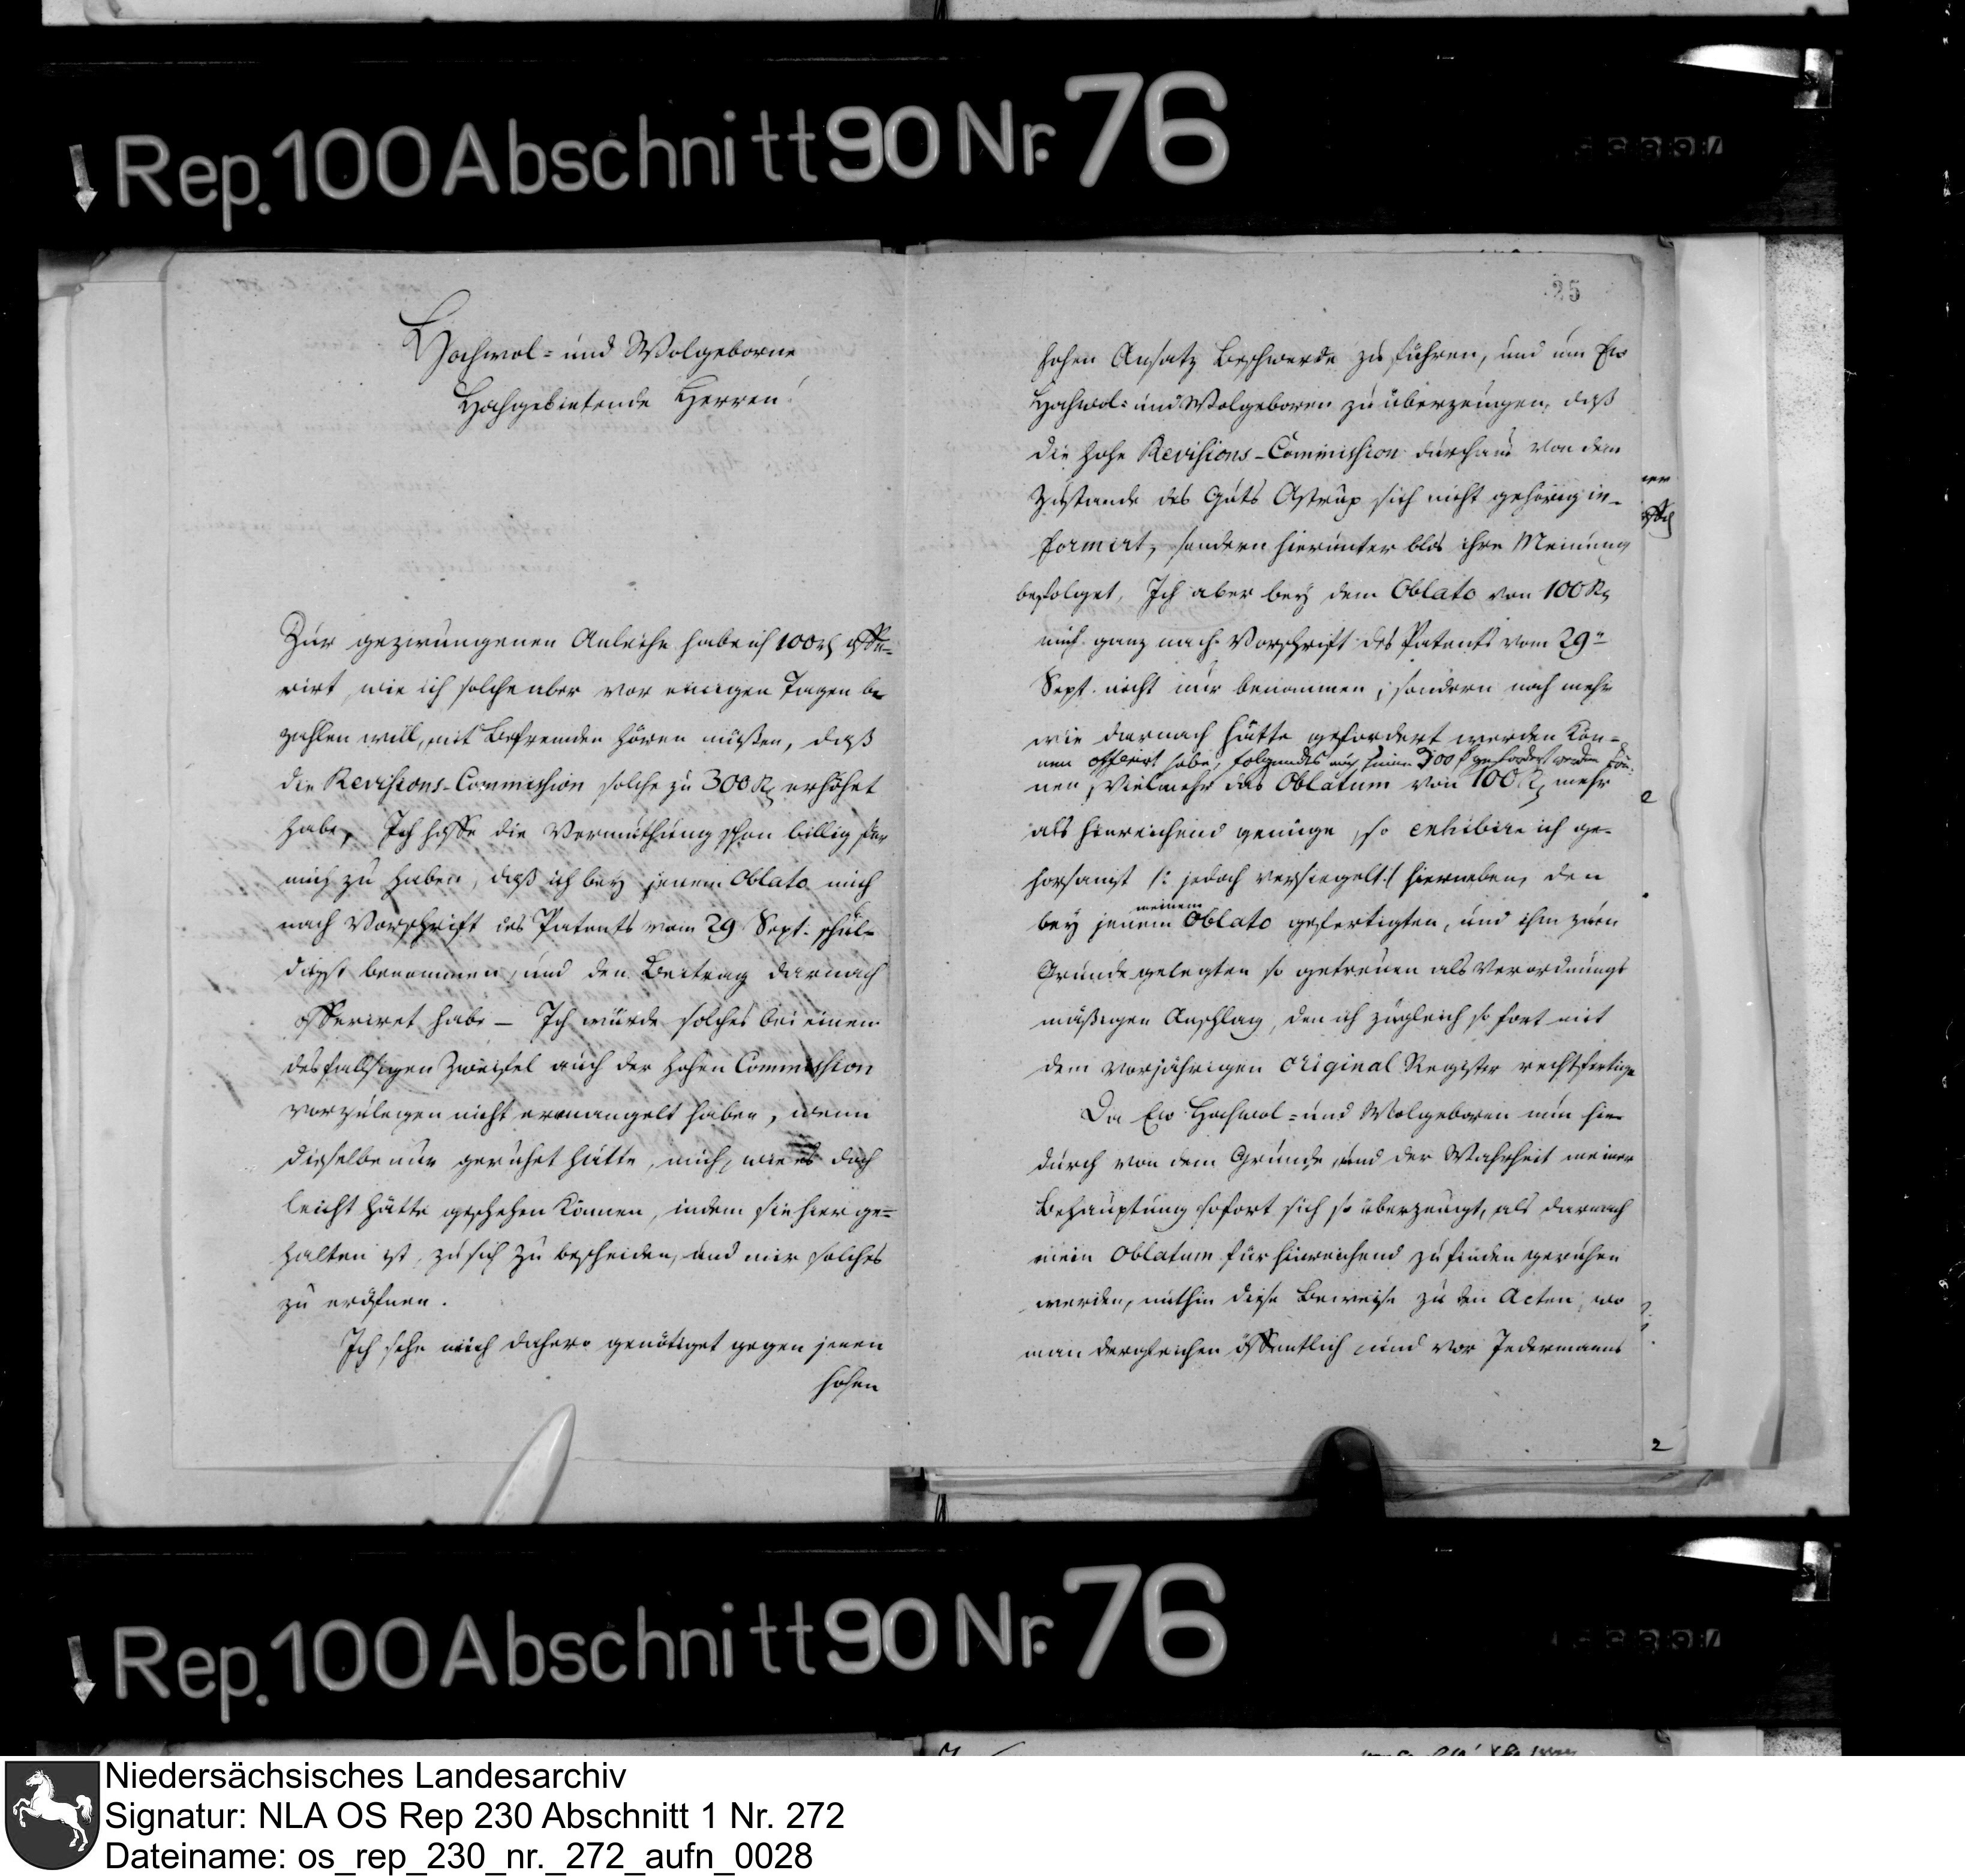 Rep. 100 Abschnitt 90 Nr. 76
Hochwol- und Wolgeborne
Hochgebietende Herren!
Zur gezwungenen Anleihe habe ich 100 rh offe-
rirt, wie ich solche aber vor einigen Tagen be
zahlen will, mit Befremden hören müßen, daß
die Revisions-Commission solche zu 300 R erhöhet
habe, Ich hoffe die Vermuthung schon billig für
mich zu haben, daß ich bey jenem Oblato mich
nach Vorschrift des Patents vom 29 Sept. schul-
digst benommen, und den Beitrag darnach
offeriret habe – Ich würde solches bei einem
desfallsigen Zweifel auch der hohen Commission
vorzulegen nicht ermangelt haben, wenn
dieselbe nur geruhet hätte, mich, wie es doch
leicht hätte geschehen können, indem sie hier ge-
halten ist, zu sich zu bescheiden, und mir solches
zu eröfnen.
Ich sehe mich dahero genötiget gegen jenen
hohen
25
hohen Ansatz Beschwerde zu führen, und um Ew
Hochwol- und Wolgeboren zu überzeugen, daß
die hohe Revisions-Commission durchaus von dem
Zustande des Guts Astrup sich nicht gehörig in-
formirt, sondern hierunter blos ihre Meinung
befolget, Ich aber bey dem Oblato von 100 R
mich ganz nach Vorschrift des Patents vom 29n
Sept. nicht nur benommen, sondern noch mehr
wie darnach hätte gefordert werden kön-
nen offerirt habe, folgendes auch keine 300 gefordert werden kön-
nen, vielmehr das Oblatum von 100 R mehr
als hinreichend genüge, so exhibire ich ge-
horsamst /: jedoch versiegelt :/ hierneben, den
meinem
bey jenem Oblato gefertigten, und ihm zum
Grunde gelegten so getreuen als verordnungs
mäßigen Anschlag, den ich zugleich so fort mit
dem vorjährigen Original Register rechtfertige
Da Ew Hochwol- und Wolgeboren nun hie
durch von dem Grunde und der Wahrheit meiner
Behauptung sofort sich so überzeugt, als darnach
mein Oblatum für hinreichend zu finden geruhen
werden, mithin diese Beweise zu den Acten, wo
man dergleichen öffentlich und vor Jedermanns
2
Rep. 100 Abschnitt 90 Nr. 76
Niedersächsisches Landesarchiv
Signatur: NLA OS Rep 230 Abschnitt 1 Nr. 272
Dateiname: os_rep_230_nr._272_aufn_0028